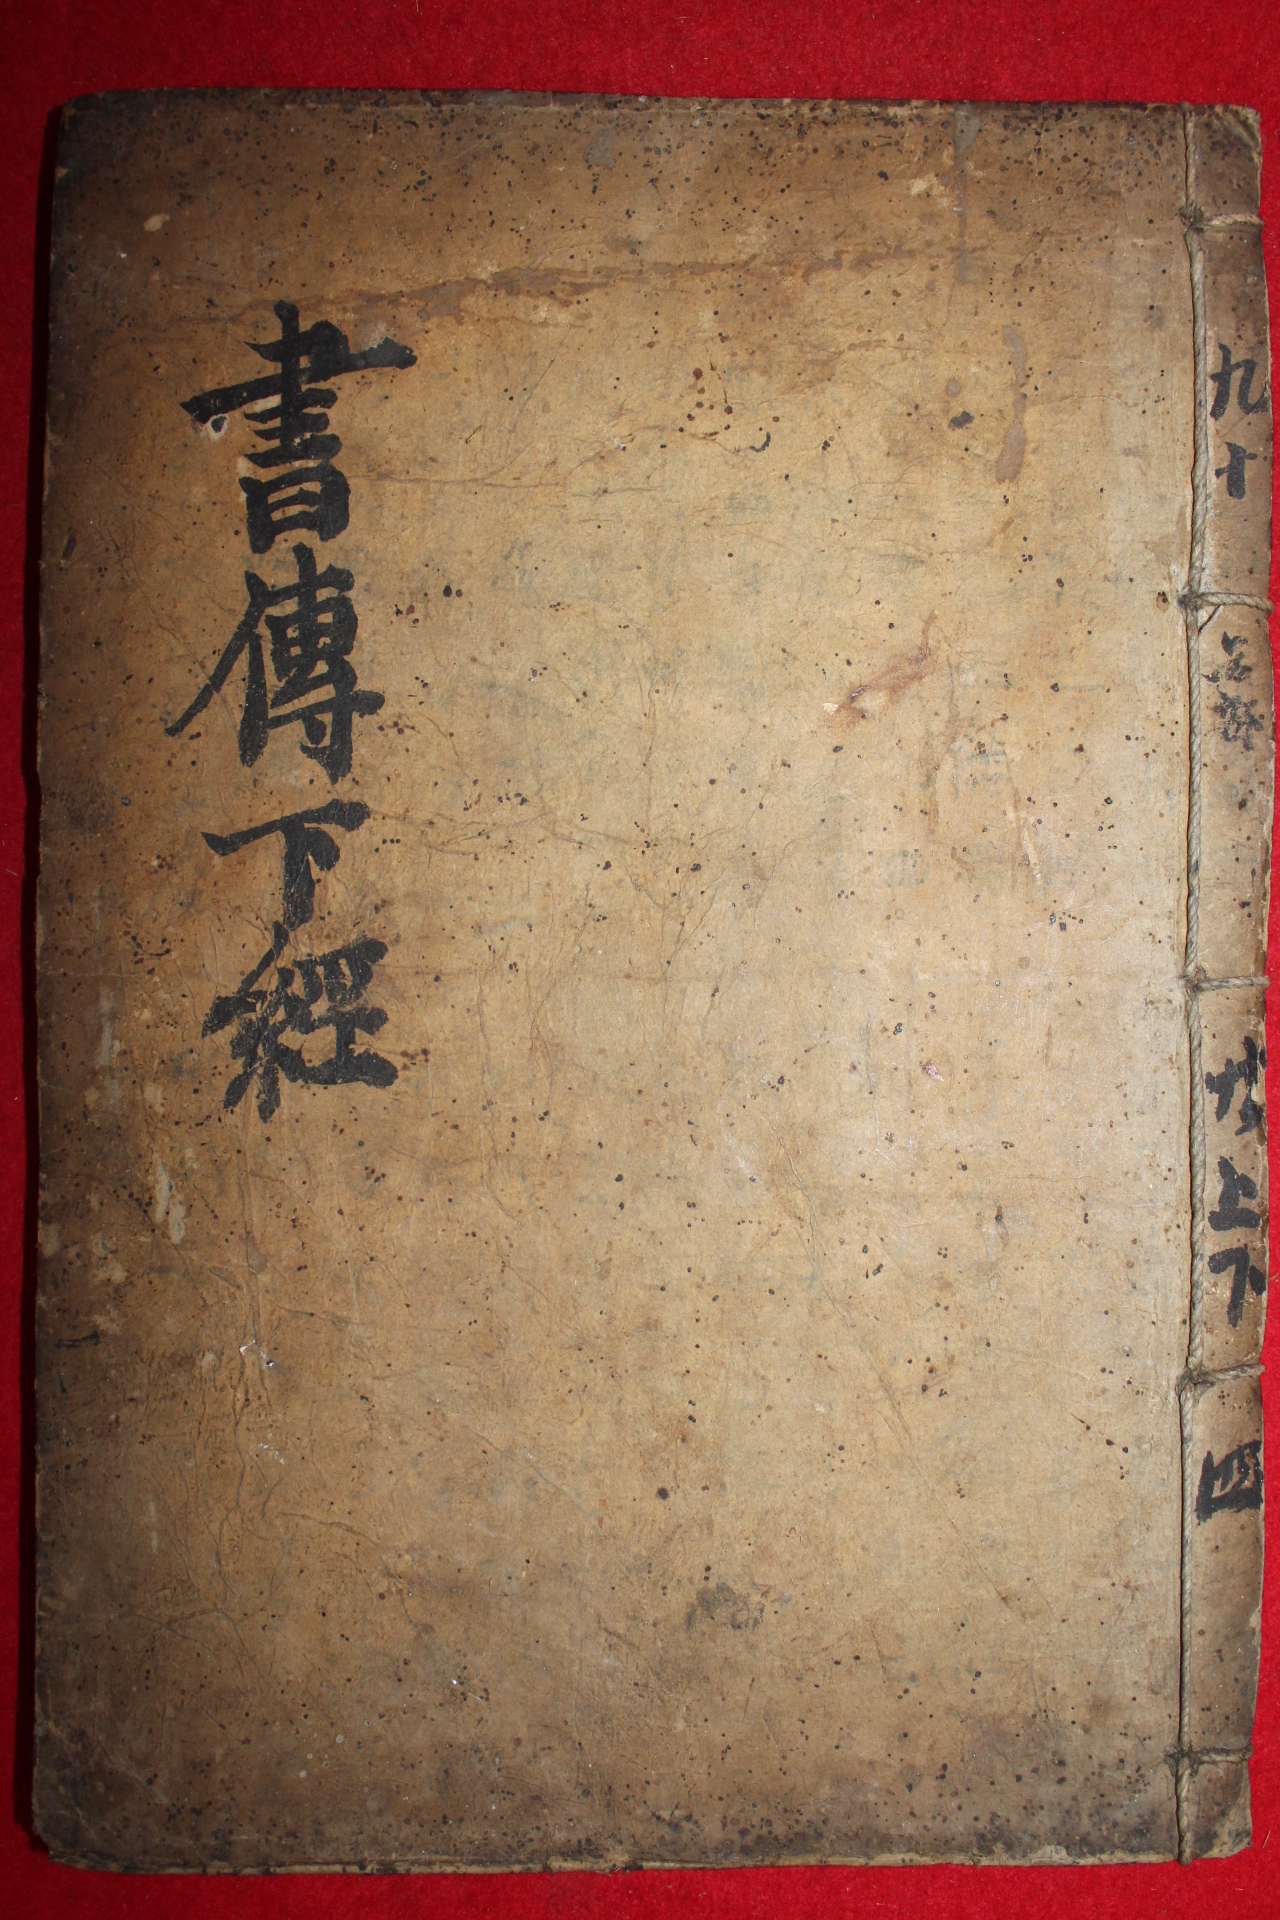 九十
上下
四
書傳下經